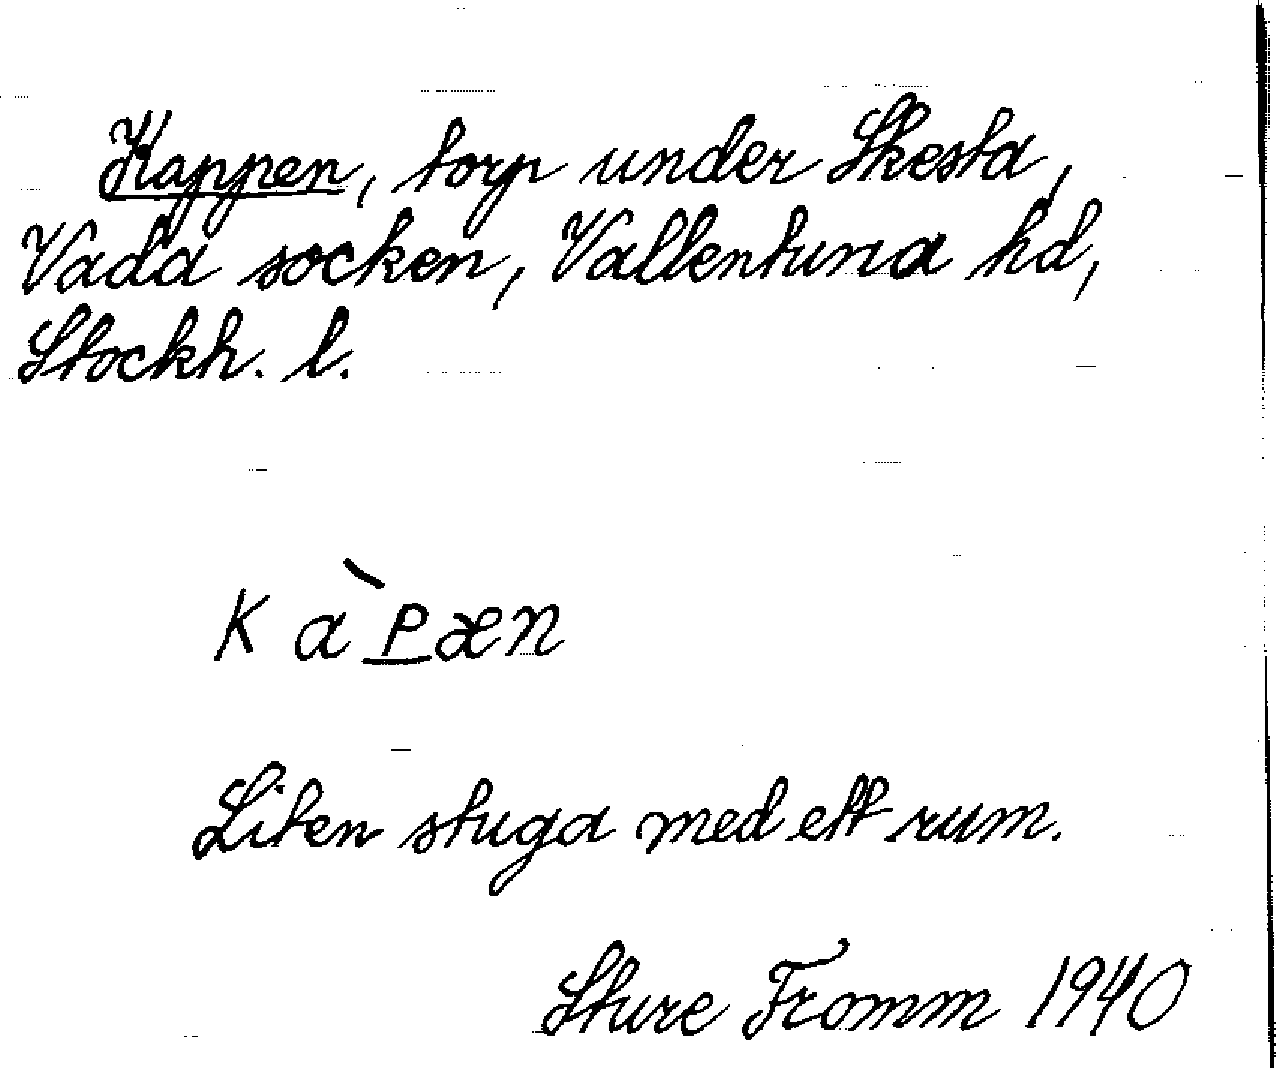 Kappen, torp under Skesta,
Vada socken, Vallentuna hd,
Stockh. l.
K a ̀p æ n
Liten stuga med ett rum.
Sture Fromm 1940